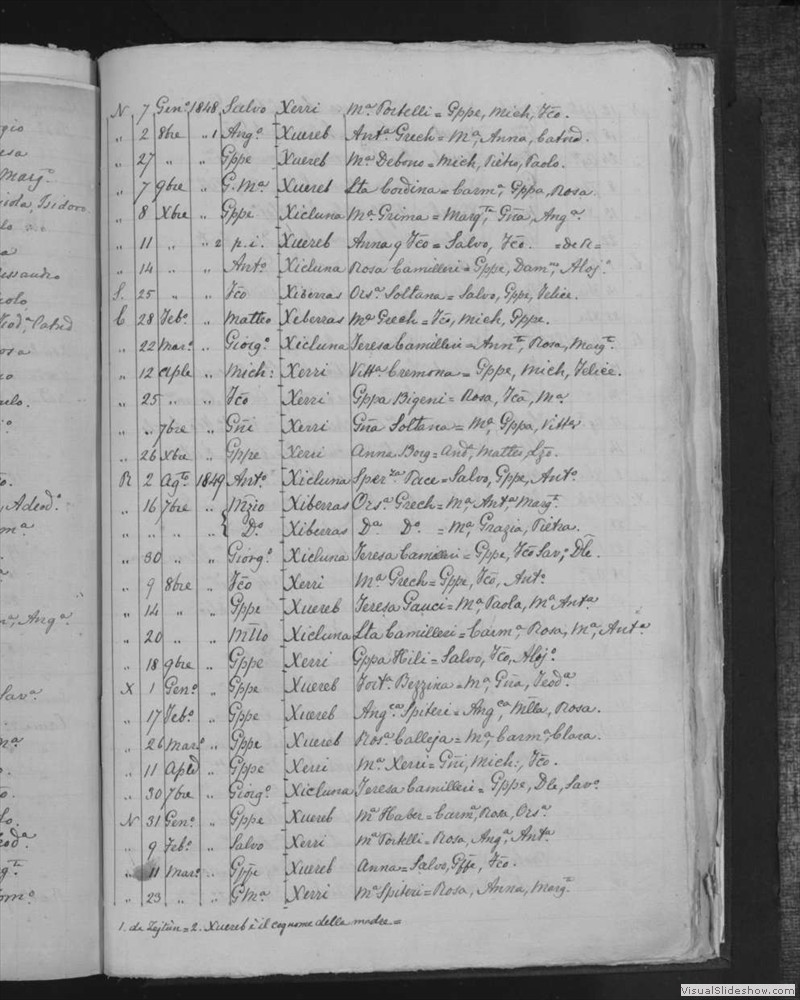 N 7 Genº 1848 Salvo Xerri Mª Portelli = Gppe, Mich, Fcõ.
„ 2 8bre „ 1 Angº Xuereb Antª Grech = Mª, Anna, Catnª.
„ 27 „ „ Gppe Xuereb Mª Debono = Mich, Pietro, Paolo.
„ 7 9bre „ G. Mª Xuereb Lta Cordina = Carmª, Gppa, Rosa.
„ 8 Xbre „ Gppe Xicluna Mª Grima = Margta, Gña, Angª.
„ 11 „ „ 2 p.i. Xuereb Anna q Fcõ = Salvo, Fcõ. = de R =
„ 14 „ „ Antº Xicluna Rosa Camilleri = Gppe, Damco, Alojº
S. 25 „ „ Fcõ Xiberras Orsª Soltana = Salvo, Gppe, Felice.
C 28 Febº „ Matteo Xeberras Mª Grech = Fcõ, Mich, Gppe.
„ 22 Marº „ Giorgº Xicluna Teresa Camilleri = Annta, Rosa, Margta.
„ 12 Aple „ Mich: Xerri Vittª Cremona = Gppe, Mich, Felice.
„ 25 „ „ Fcõ Xerri Gppa Bigeni = Rosa, Fcã, Mª
„ „ 7bre „ Gñi Xerri Gña Soltana = Mª, Gppa, Vittª
„ 26 Xbre „ Gppe Xerri Anna Borg = Andª, Matteo, Lzõ.
R 2 Agtº 1849 Antº Xicluna Sperza Pace = Salvo, Gppe, Antº
„ 16 7bre „ Nzio Xiberras Orsª Grech = Mª, Antª, Margta.
„ „ „ „ Dº Xiberras Dª Dº. = Mª, Grazia, Pietra.
„ 30 „ „ Giorgº Xicluna Teresa Camilleri = Gppe, Fcõ Savº, Dle.
„ 9 8bre „ Fcõ Xerri Mª Grech = Gppe, Fcõ, Antº
„ 14 „ „ Gppe Xuereb Teresa Gauci = Mª, Paola, Mª Antª
„ 20 „ „ Mtto Xicluna Lta Camilleri = Carmª, Rosa, Mª, Antª
„ 18 9bre „ Gppe Xerri Gppa Hili = Salvo, Fcõ, Alojº
X 1 Genº „ Gppe Xuereb Fortª Bezzina = Mª, Gña, Teodª
„ 17 Febº „ Gppe Xuereb Angca Spiteri = Angca, Mtta, Rosa.
„ 26 Marº „ Gppe Xuereb Rosª Calleja = Mª, Carmª, Clara.
„ 11 Aple „ Gppe Xerri Mª Xerri = Gñi, Mich:, Fcõ.
„ 30 7bre „ Giorgº Xicluna Teresa Camilleri = Gppe, Dle, Savº
N 31 Genº „ Gppe Xuereb Mª Haber = Carmª, Rosa, Orsª
„ 9 Febº „ Salvo Xerri Mª Portelli = Rosa, Angª, Antª
„ 11 Marº „ Gppe Xuereb Anna = Salvo, Gppe, Fcõ.
„ 23 „ „ G Mª Xerri Mª Spiteri = Rosa, Anna, Margta
1. da Zejtun = 2. Xuereb è il cognome della madre =
VisualSlideshow.com